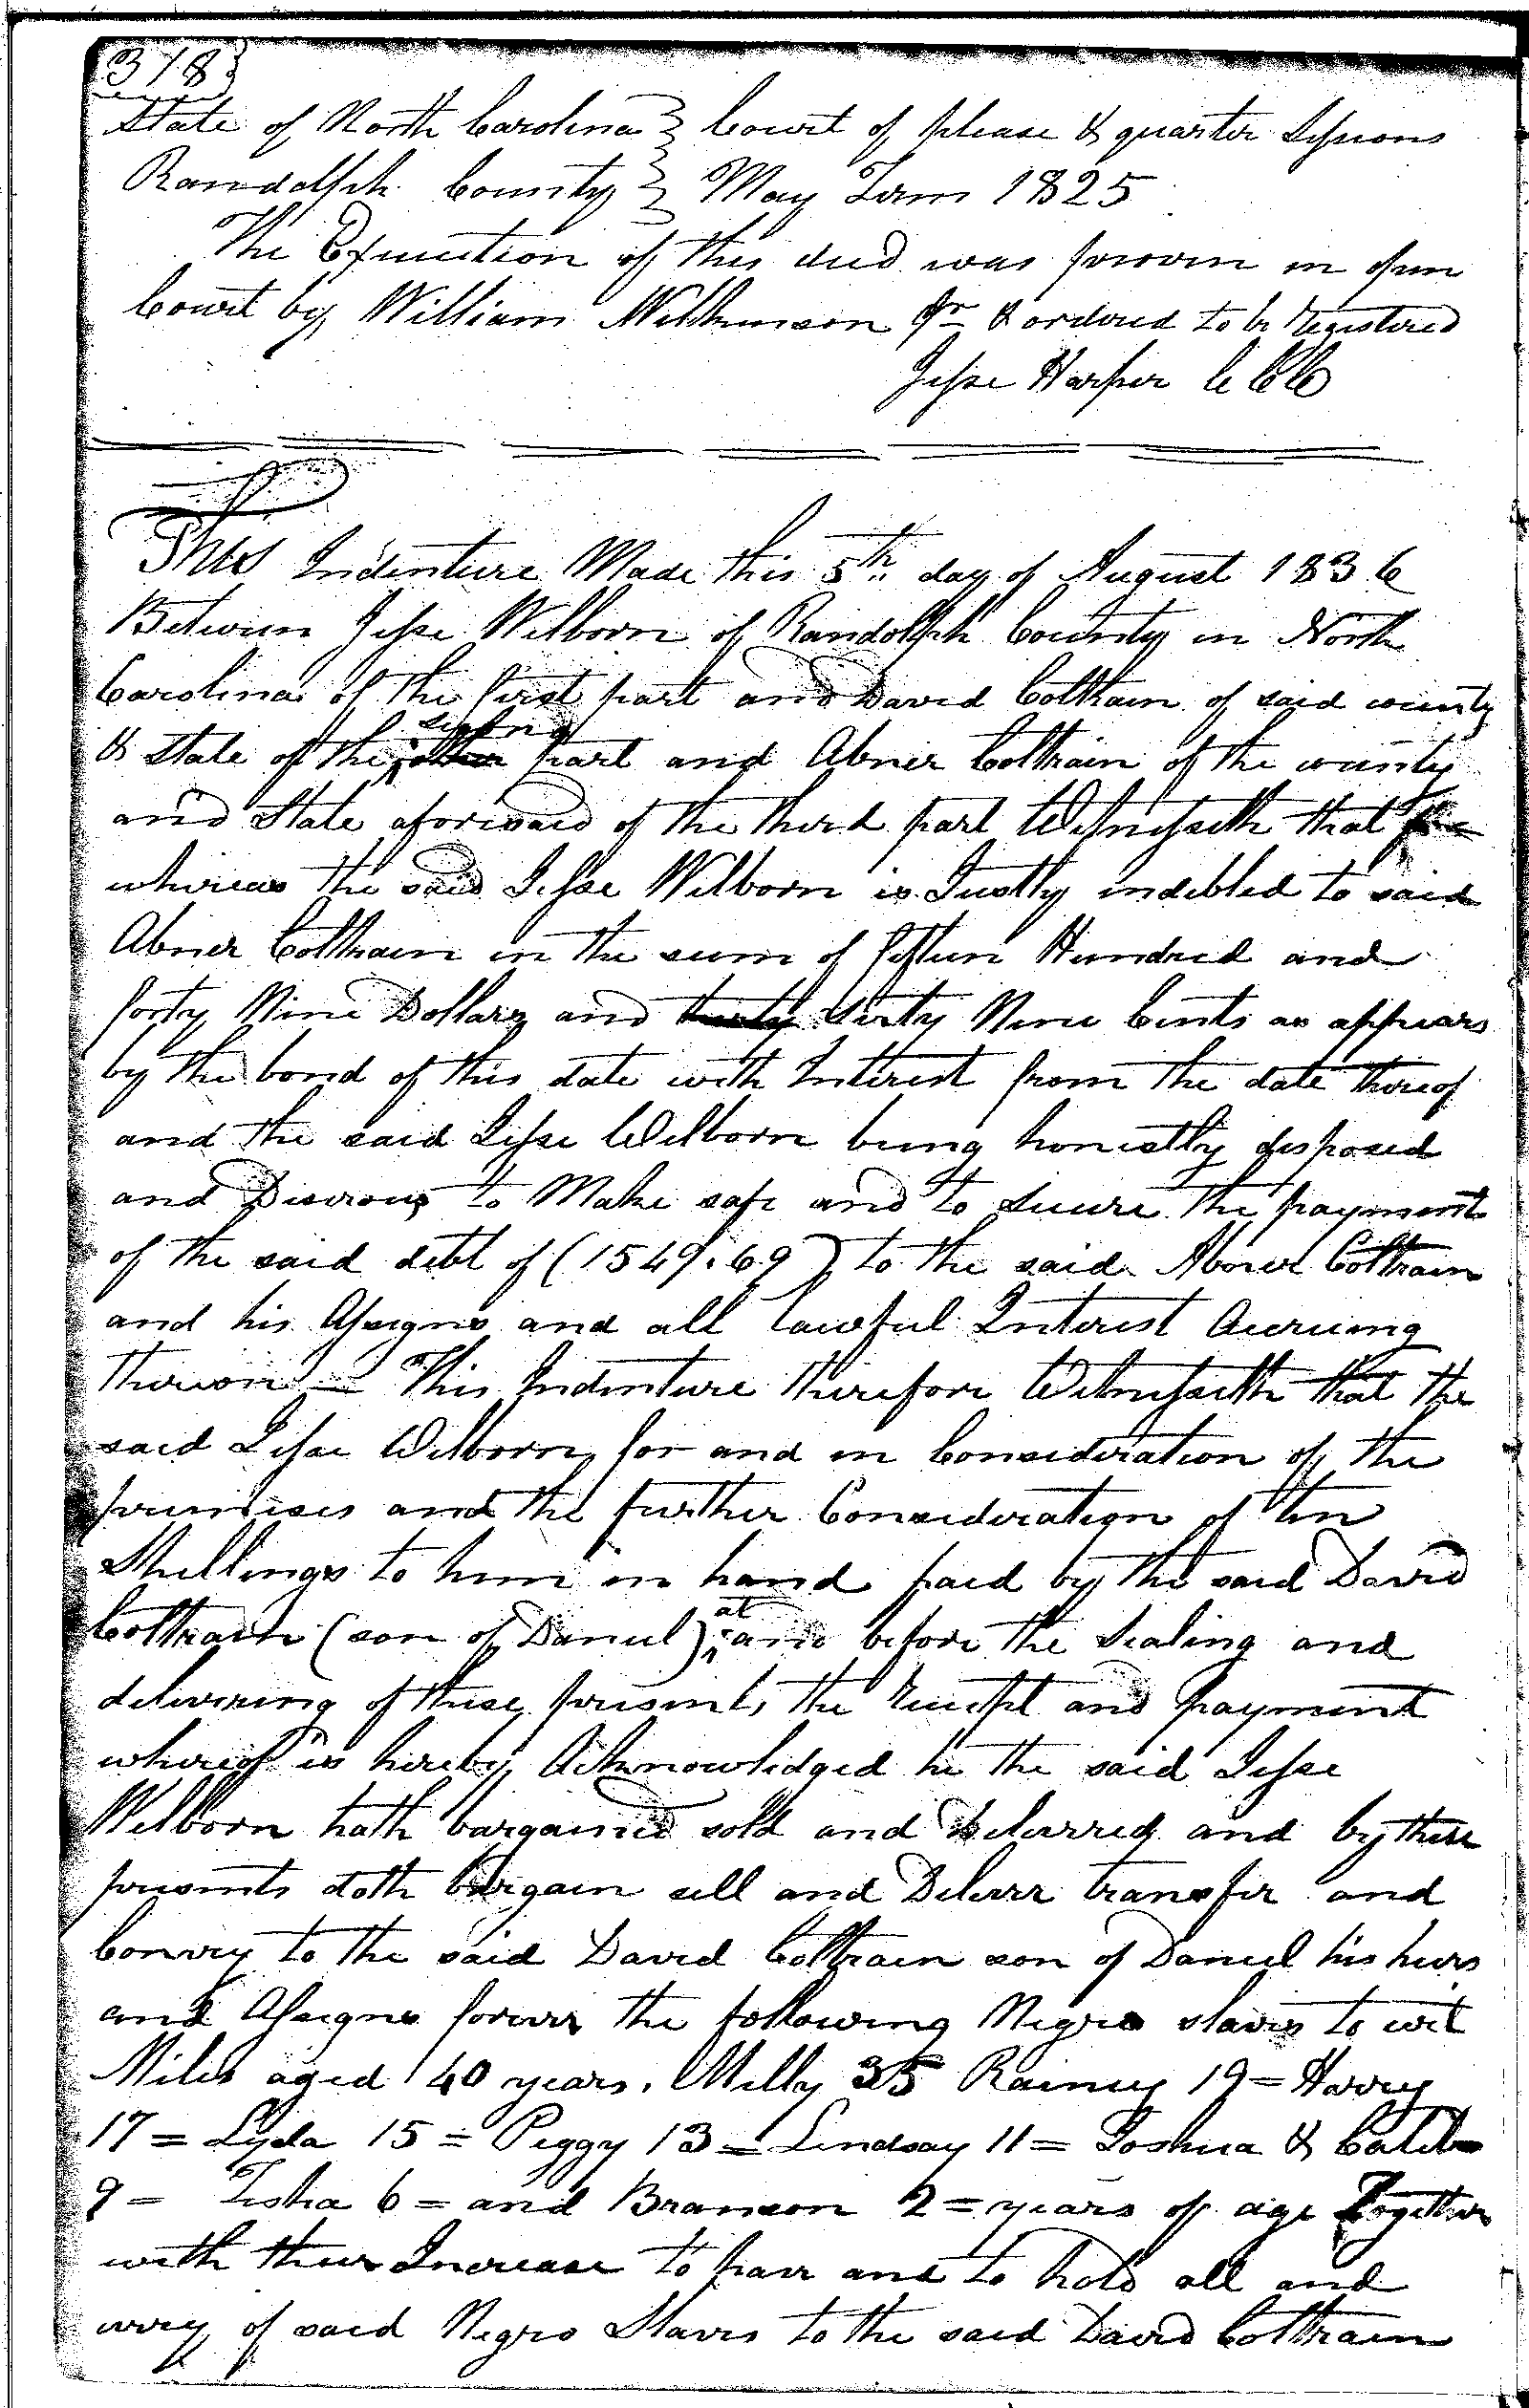 318
State of North Carolina } Court of please & quarter Sessions
Randolph County } May Term 1825
The Execution of this deed was proven in open
Court by William Wilkinson Jr & ordered to be registered
Jesse Harper C C C
This Indenture Made this 5th day of August 1836
Between Jesse Welborn of Randolph County in North
Carolina of the first part and David Coltrain of said county
second
& State of the other part and Abner Coltrain of the county
and State aforesaid of the third part Witnesseth that
whereas the said Jesse Welborn is Justly indebted to said
Abner Coltrain in the sum of fifteen Hundred and
forty Nine Dollars and thirty Sixty Nine Cents as appears
by the bond of this date with Interest from the date thereof
and the said Jesse Welborn being honestly disposed
and Disirous to Make safe and to secure the payment
of the said debt of (1549.69) to the said Abner Coltrain
and his Assigns and all lawful Interest Accruing
thereon – This Indenture therefore Witnesseth that the
said Jesse Welborn for and in Consideration of the
premises and the further Consideration of ten
Shillings to him in hand paid by the said David
at
Coltrain (son of Daniel) and before the Sealing and
delivering of these presents the receipt and payment
whereof is hereby Acknowledged he the said Jesse
Welborn hath bargained sold and Delivered and by these
presents doth bargain sell and Deliver transfer and
Convey to the said David Coltrain son of Daniel his heirs
and Assigns forever the following Negro slaves to wit
Miles aged 40 years, Milly 35 Rainey 19 = Harvey
17 = Lyda 15 = Peggy 13 = Lindsay 11 = Joshua & Caleb
9 = Tisha 6 = and Branson 2 = years of age Together
with their Increase to have and to hold all and
every of said Negro Slaves to the said David Coltrain